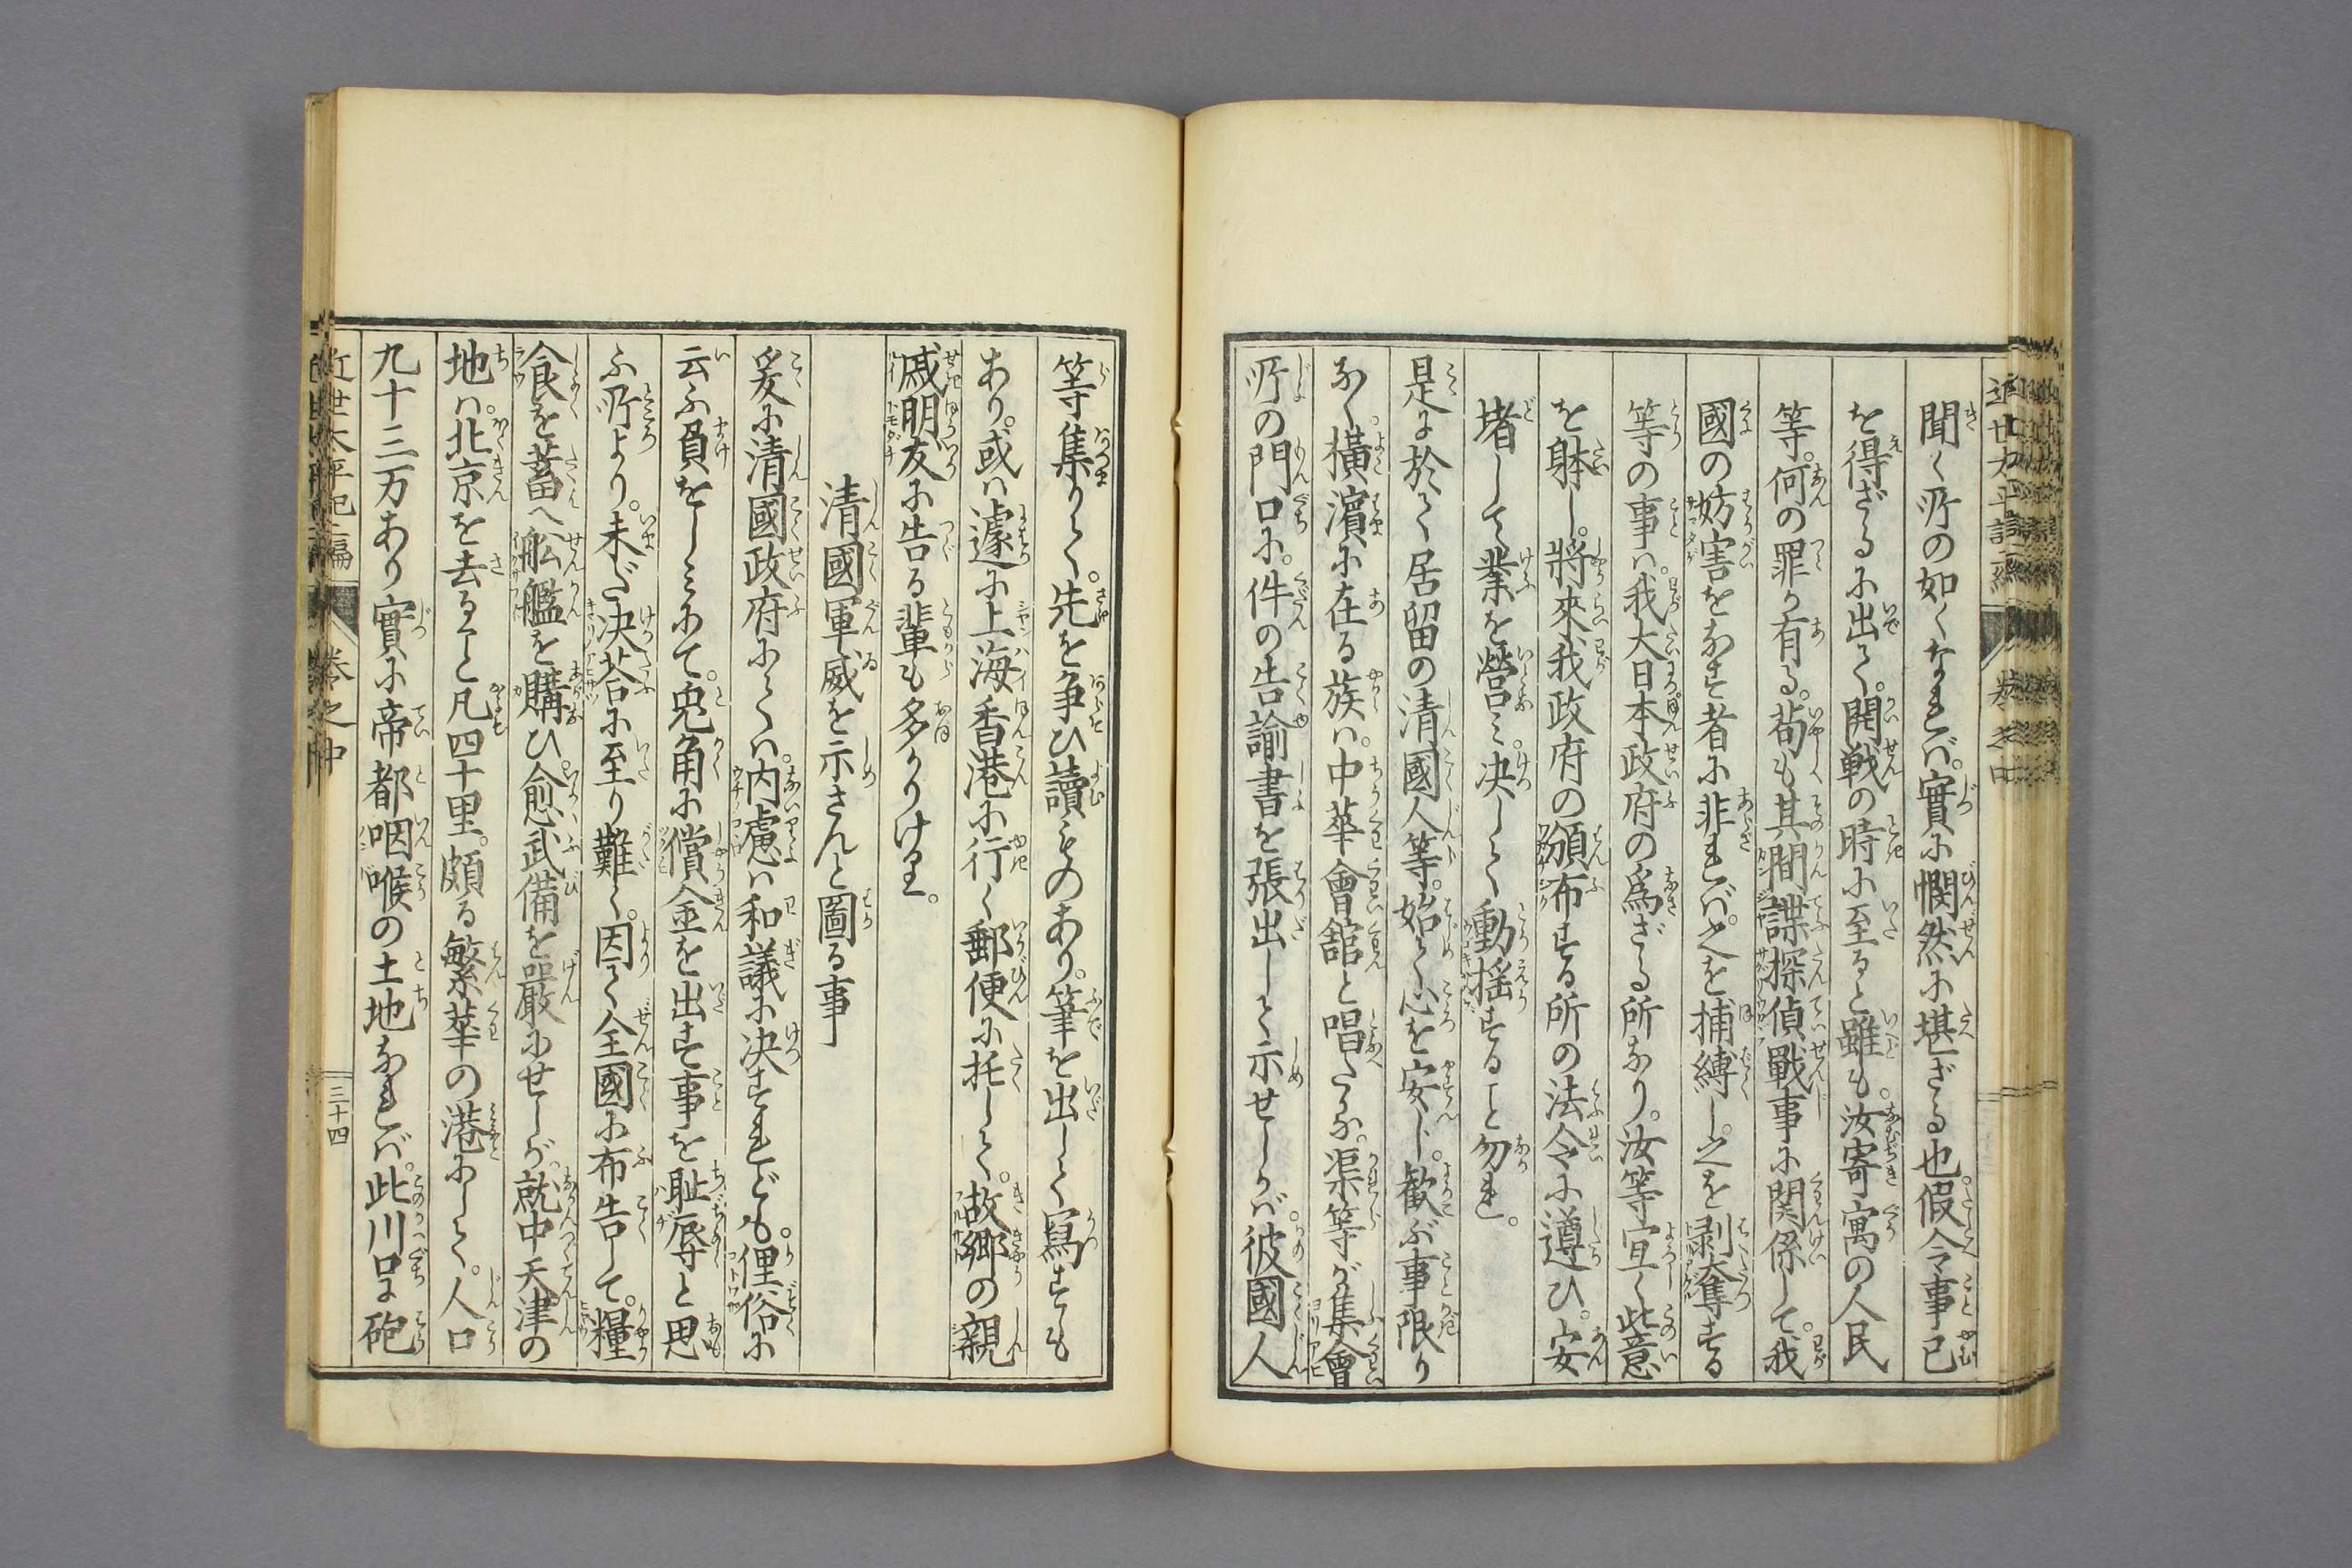 聞く所の如くなれば。實に憫然に堪ざる也。假令事已
を得ざるに出て。開戦の時に至ると雖も。汝寄寓の人民
等。何の罪か有る。苟も其間諜探偵戰事に関係して。我
國の妨害をなす者に非れば。之を捕縛し。之を剥奪する
等の事ハ。我大日本政府の爲ざる所なり。汝等宜く此意
を躰し。將來我政府の頒布する所の法令に遵ひ。安
堵して業を營ミ。决して動揺すること勿れ。
是に於て居留の清國人等。始て心を安じ。歓ぶ事限り
なく。横濱に在る族ハ。中華會舘と唱へたるが。渠等が集會
所の門口に。件の告諭書を張出して示せしかバ。彼國人
等集りて。先を争ひ讀ものあり。筆を出して寫すも
あり。或ハ遽に上海香港に行く郵便に托して。故郷の親
戚朋友に告る輩も多かりけり。
清國軍威を示さんと圖る事
爰に清國政府にてハ。内慮ハ和議に决すれども。俚俗に
云ふ負をしミにて。兎角に償金を出す事を耻辱と思
ふ所より。未だ决荅に至り難く。因て全國に布告して。糧
食を蓄へ舩艦を購ひ。愈武備を嚴にせしが。就中天津の
地ハ。北京を去ること凡四十里。頗る繁華の港にして。人口
九十三万あり實に帝都咽喉の土地なれば。此川口に砲
近世太平記二編
巻之中
三十四